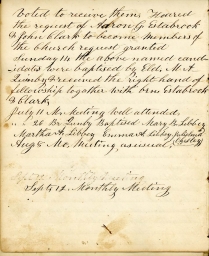 Voted to receive them. Heared
the request of Narose G. Estabrook
& John Clark to become members of
the church request granted
Sunday 14 the above named cand-
idates were baptised by Eld. M. A.
Lunby & received the right hand of
fellowship together with bren Estabrook
& Clark
July 11 Mo. Meeting well attended
" 25 Br. Lunby Baptised Mary B. Libbey
Martha A. Libbey Emma A. Libbey
Aug 5 Mo. Meeting as usual
Sept 12 Monthly Meeting